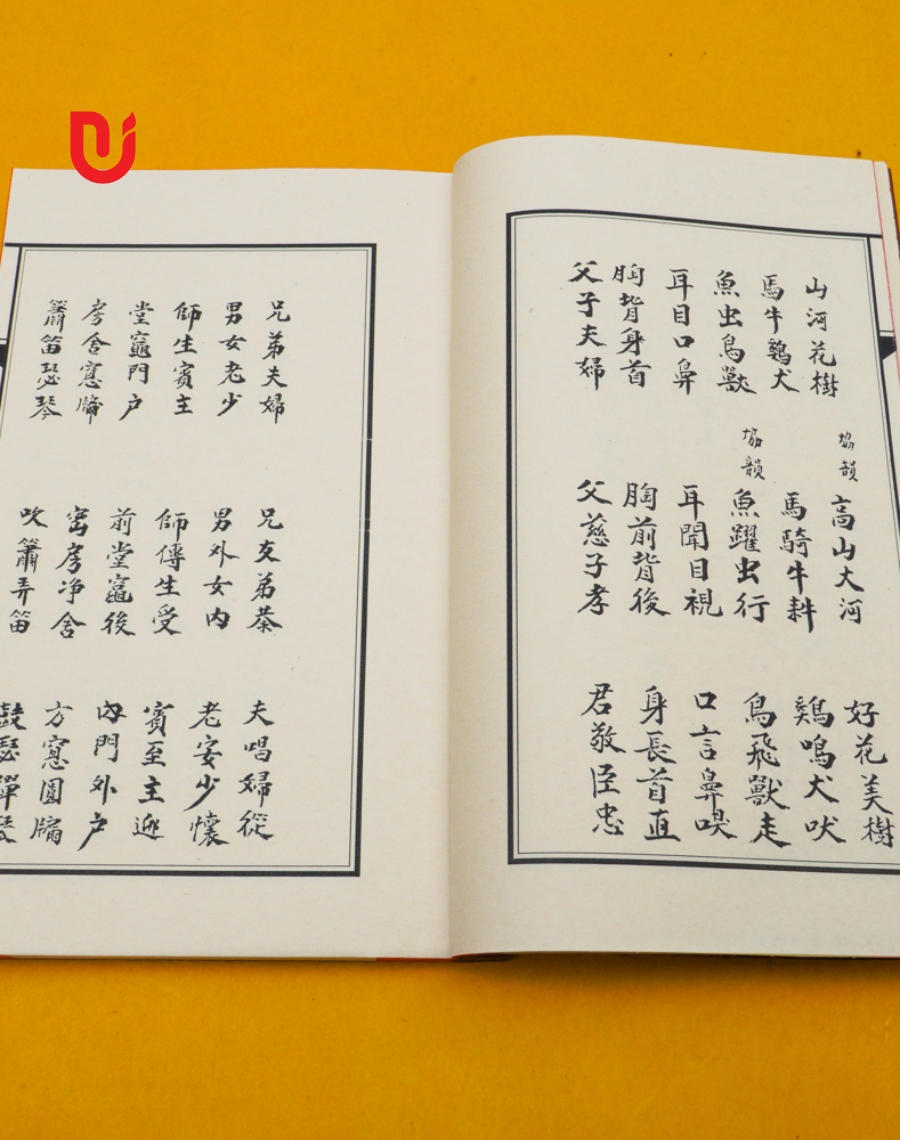 山河花樹 協韻 高山大河 好花美樹
馬牛鷄犬 馬騎牛耕 鷄鳴犬吠
魚虫鳥獸 協韻 魚躍虫行 鳥飛獸走
耳目口鼻 耳聞目視 口言鼻嗅
胸背身首 胸前背後 身長首直
父子夫婦 父慈子孝 君敬臣忠
兄弟夫婦 兄友弟恭 夫唱婦從
男女老少 男外女内 老安少懷
師生賓主 師傳生受 賓至主迎
堂竈門户 前堂竈後 内門外户
房舍窻牖 房净舍 方窻圓牖
簫笛瑟琴 吹簫弄笛 鼓瑟彈琴